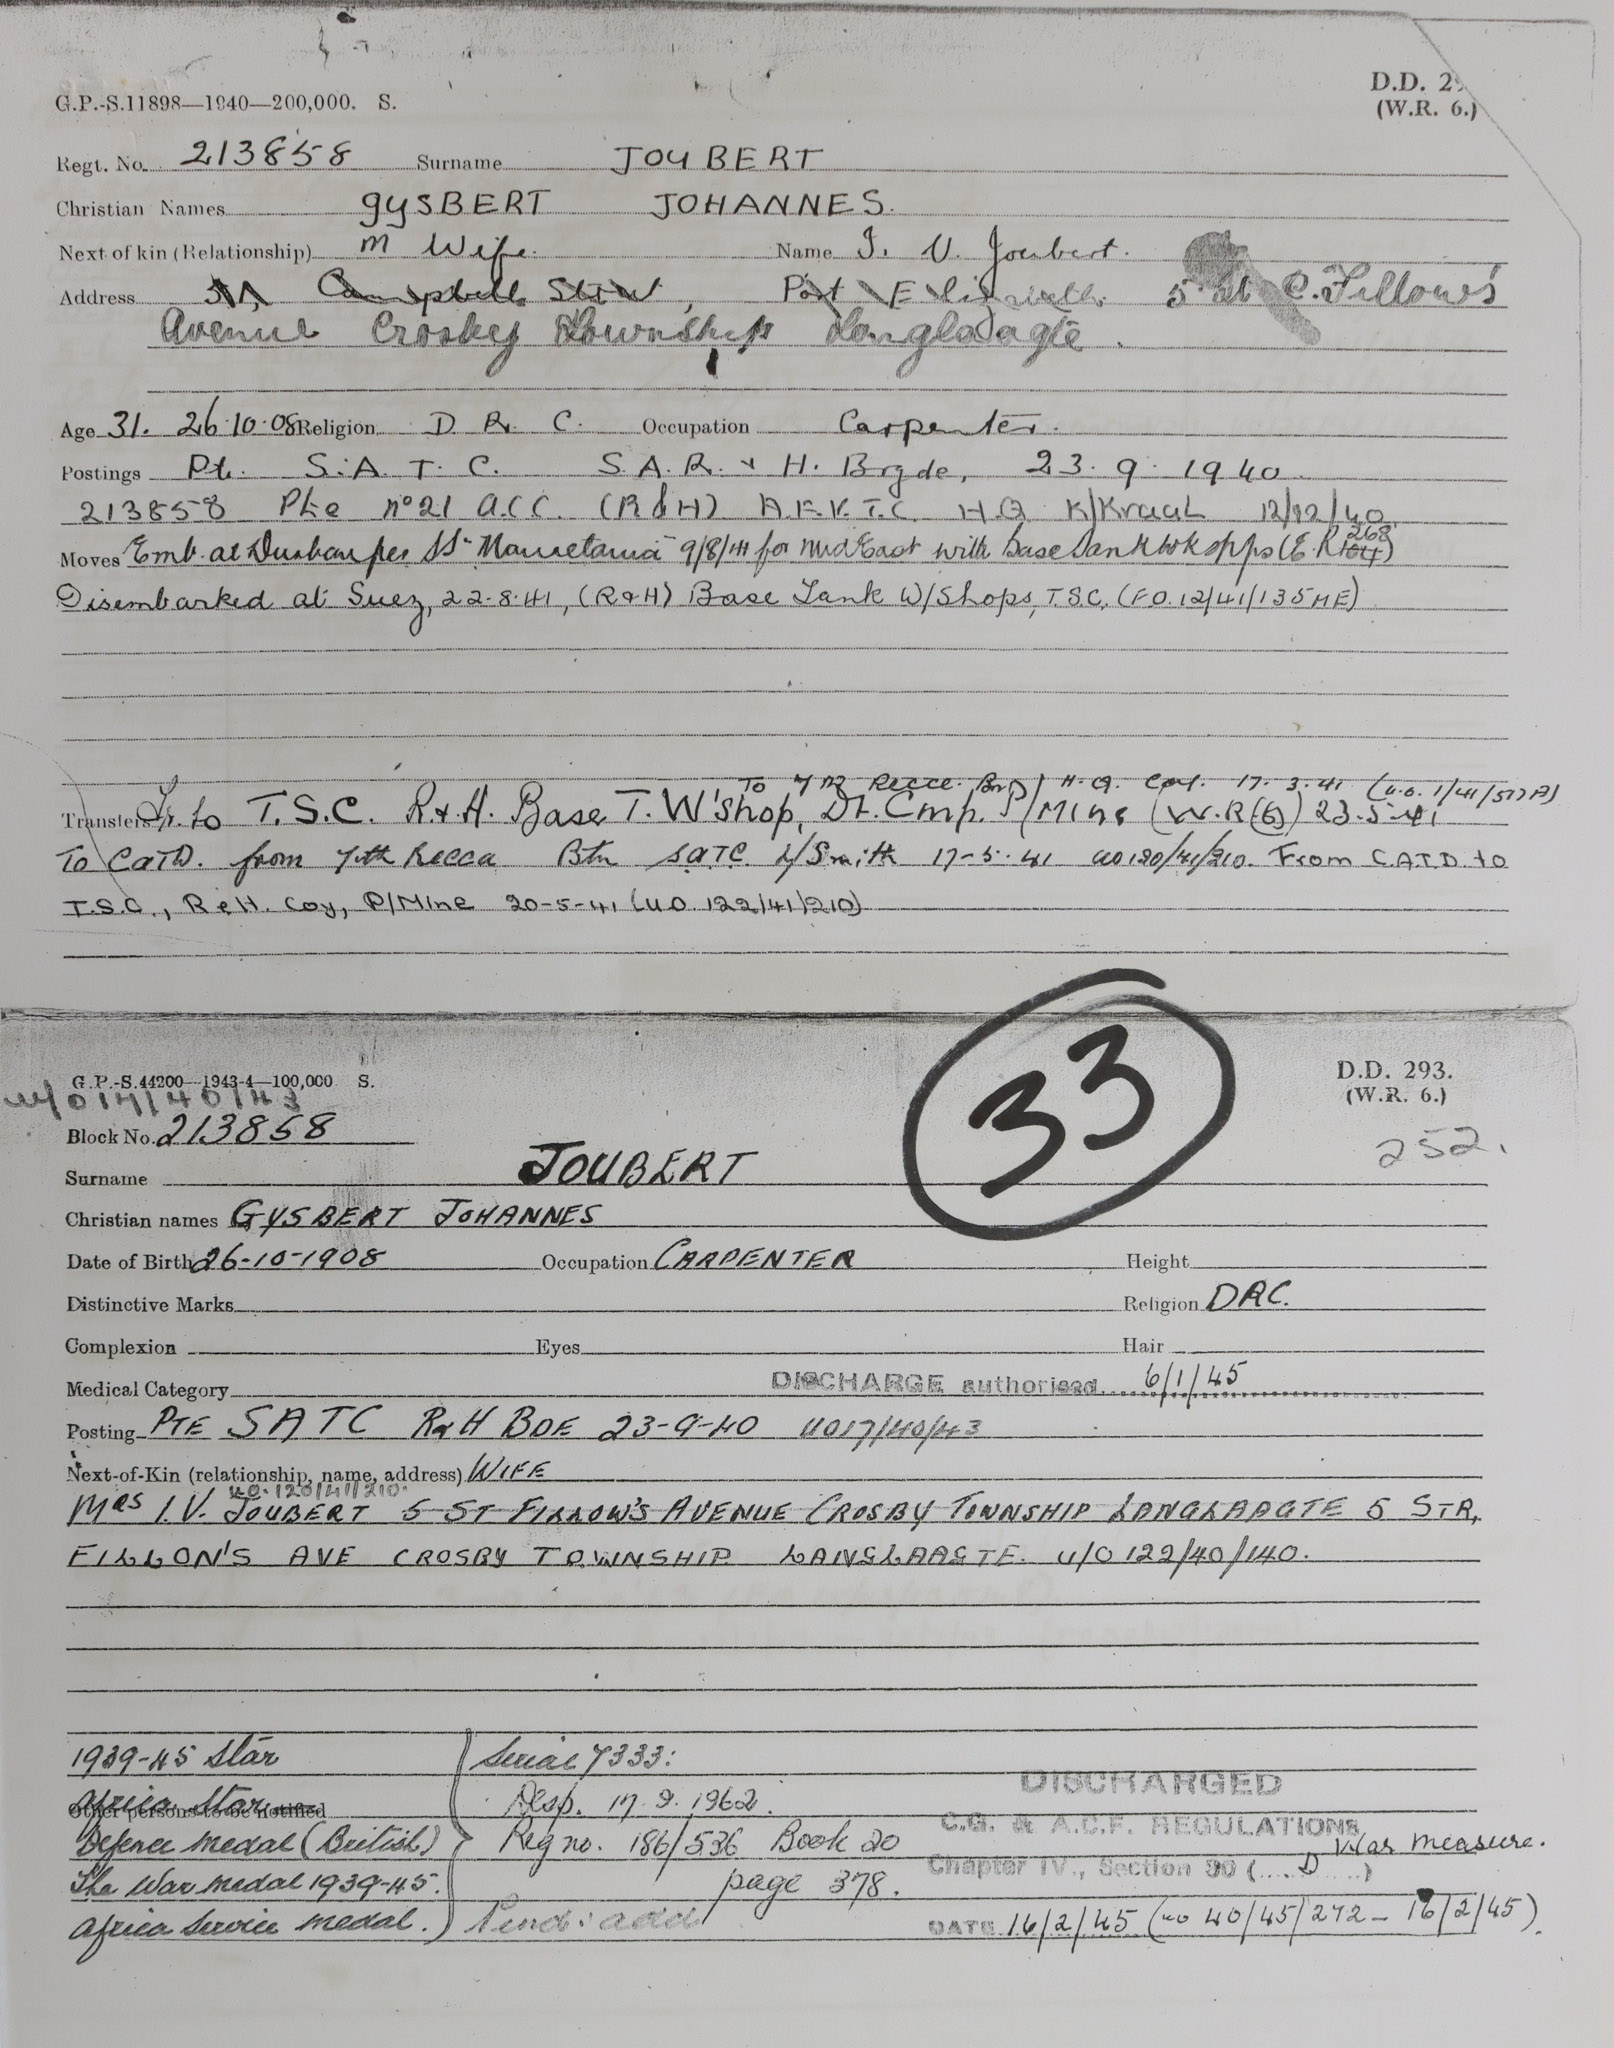 G.P.-S.11898—1940—200,000. S.
D.D. 29
(W.R. 6.)
Regt. No. 213858 Surname JOUBERT
Christian Names GYSBERT JOHANNES.
Next of kin (Relationship) M Wife. Name I. V. Joubert.
Address Campbell Street, Port Elizabeth. 5 St C. Fillow's
Avenue Crosby Township Langlaagte.
Age 31. 26.10.08 Religion D R. C. Occupation Carpenter.
Postings Pte. S.A.T.C. S.A.R. + H. Brgde, 23.9.1940.
213858 Pte no 21 A.C.C. (R&H) A.F.V.T.C. H.Q K/Kraal 12/12/40
268
Moves Emb. at Durban per SS "Mauretania" 9/8/41 for Mid East with Base Tank Wkshpps (E.R 104)
Disembarked at Suez, 22.8.41, (R&H) Base Tank W/Shops, T.S.C. (F.O. 12/41/135ME)
To 7th Recce. Bn P/ H.Q. Coy. 17.3.41 (u.o. 1/41/517A)
Transfers Tr. to T.S.C. R.&.H. Base T. W'shop, Dt. Cmp. P/Mine (W.R(6)) 23.5.41
To CATD. from 7th Recca Btn SATC L/Smith 17-5-41 uo 120/41/210. From C.A.T.D. to
T.S.C., R&H. Coy, P/Mine 20-5-41 (U.O. 122/41/210)
33
G.P.-S.44200—1943-4—100,000 S.
D.D. 293.
(W.R. 6.)
u/o 17/40/43
252.
Block No. 213858
Surname JOUBERT
Christian names GYSBERT JOHANNES
Date of Birth 26-10-1908 Occupation CARPENTER Height
Distinctive Marks Religion DRC.
Complexion Eyes Hair
Medical Category DISCHARGE authorised 6/1/45
Posting PTE SATC R&H BDE 23-9-40 uo17/40/43
Next-of-Kin (relationship, name, address) WIFE
uo.120/41/210.
MRS I.V. JOUBERT 5 ST FILLOW'S AVENUE CROSBY TOWNSHIP LANGLAAGTE 5 STR,
FILLON'S AVE CROSBY TOWNSHIP LANGLAAGTE. u/o 122/40/140.
1939-45 Star Serial 7333:
DISCHARGED
Africa Star Desp. 17.9.1962.
Other persons to be notified
C.G. & A.C.F. REGULATIONS
Defence Medal (British) Reg no. 186/536 Book 20
War Measure.
Chapter IV., Section 90 (....D......)
The War Medal 1939-45. page 378.
Africa Service Medal.
DATE 16/2/45 (uo 40/45/272 - 16/2/45).